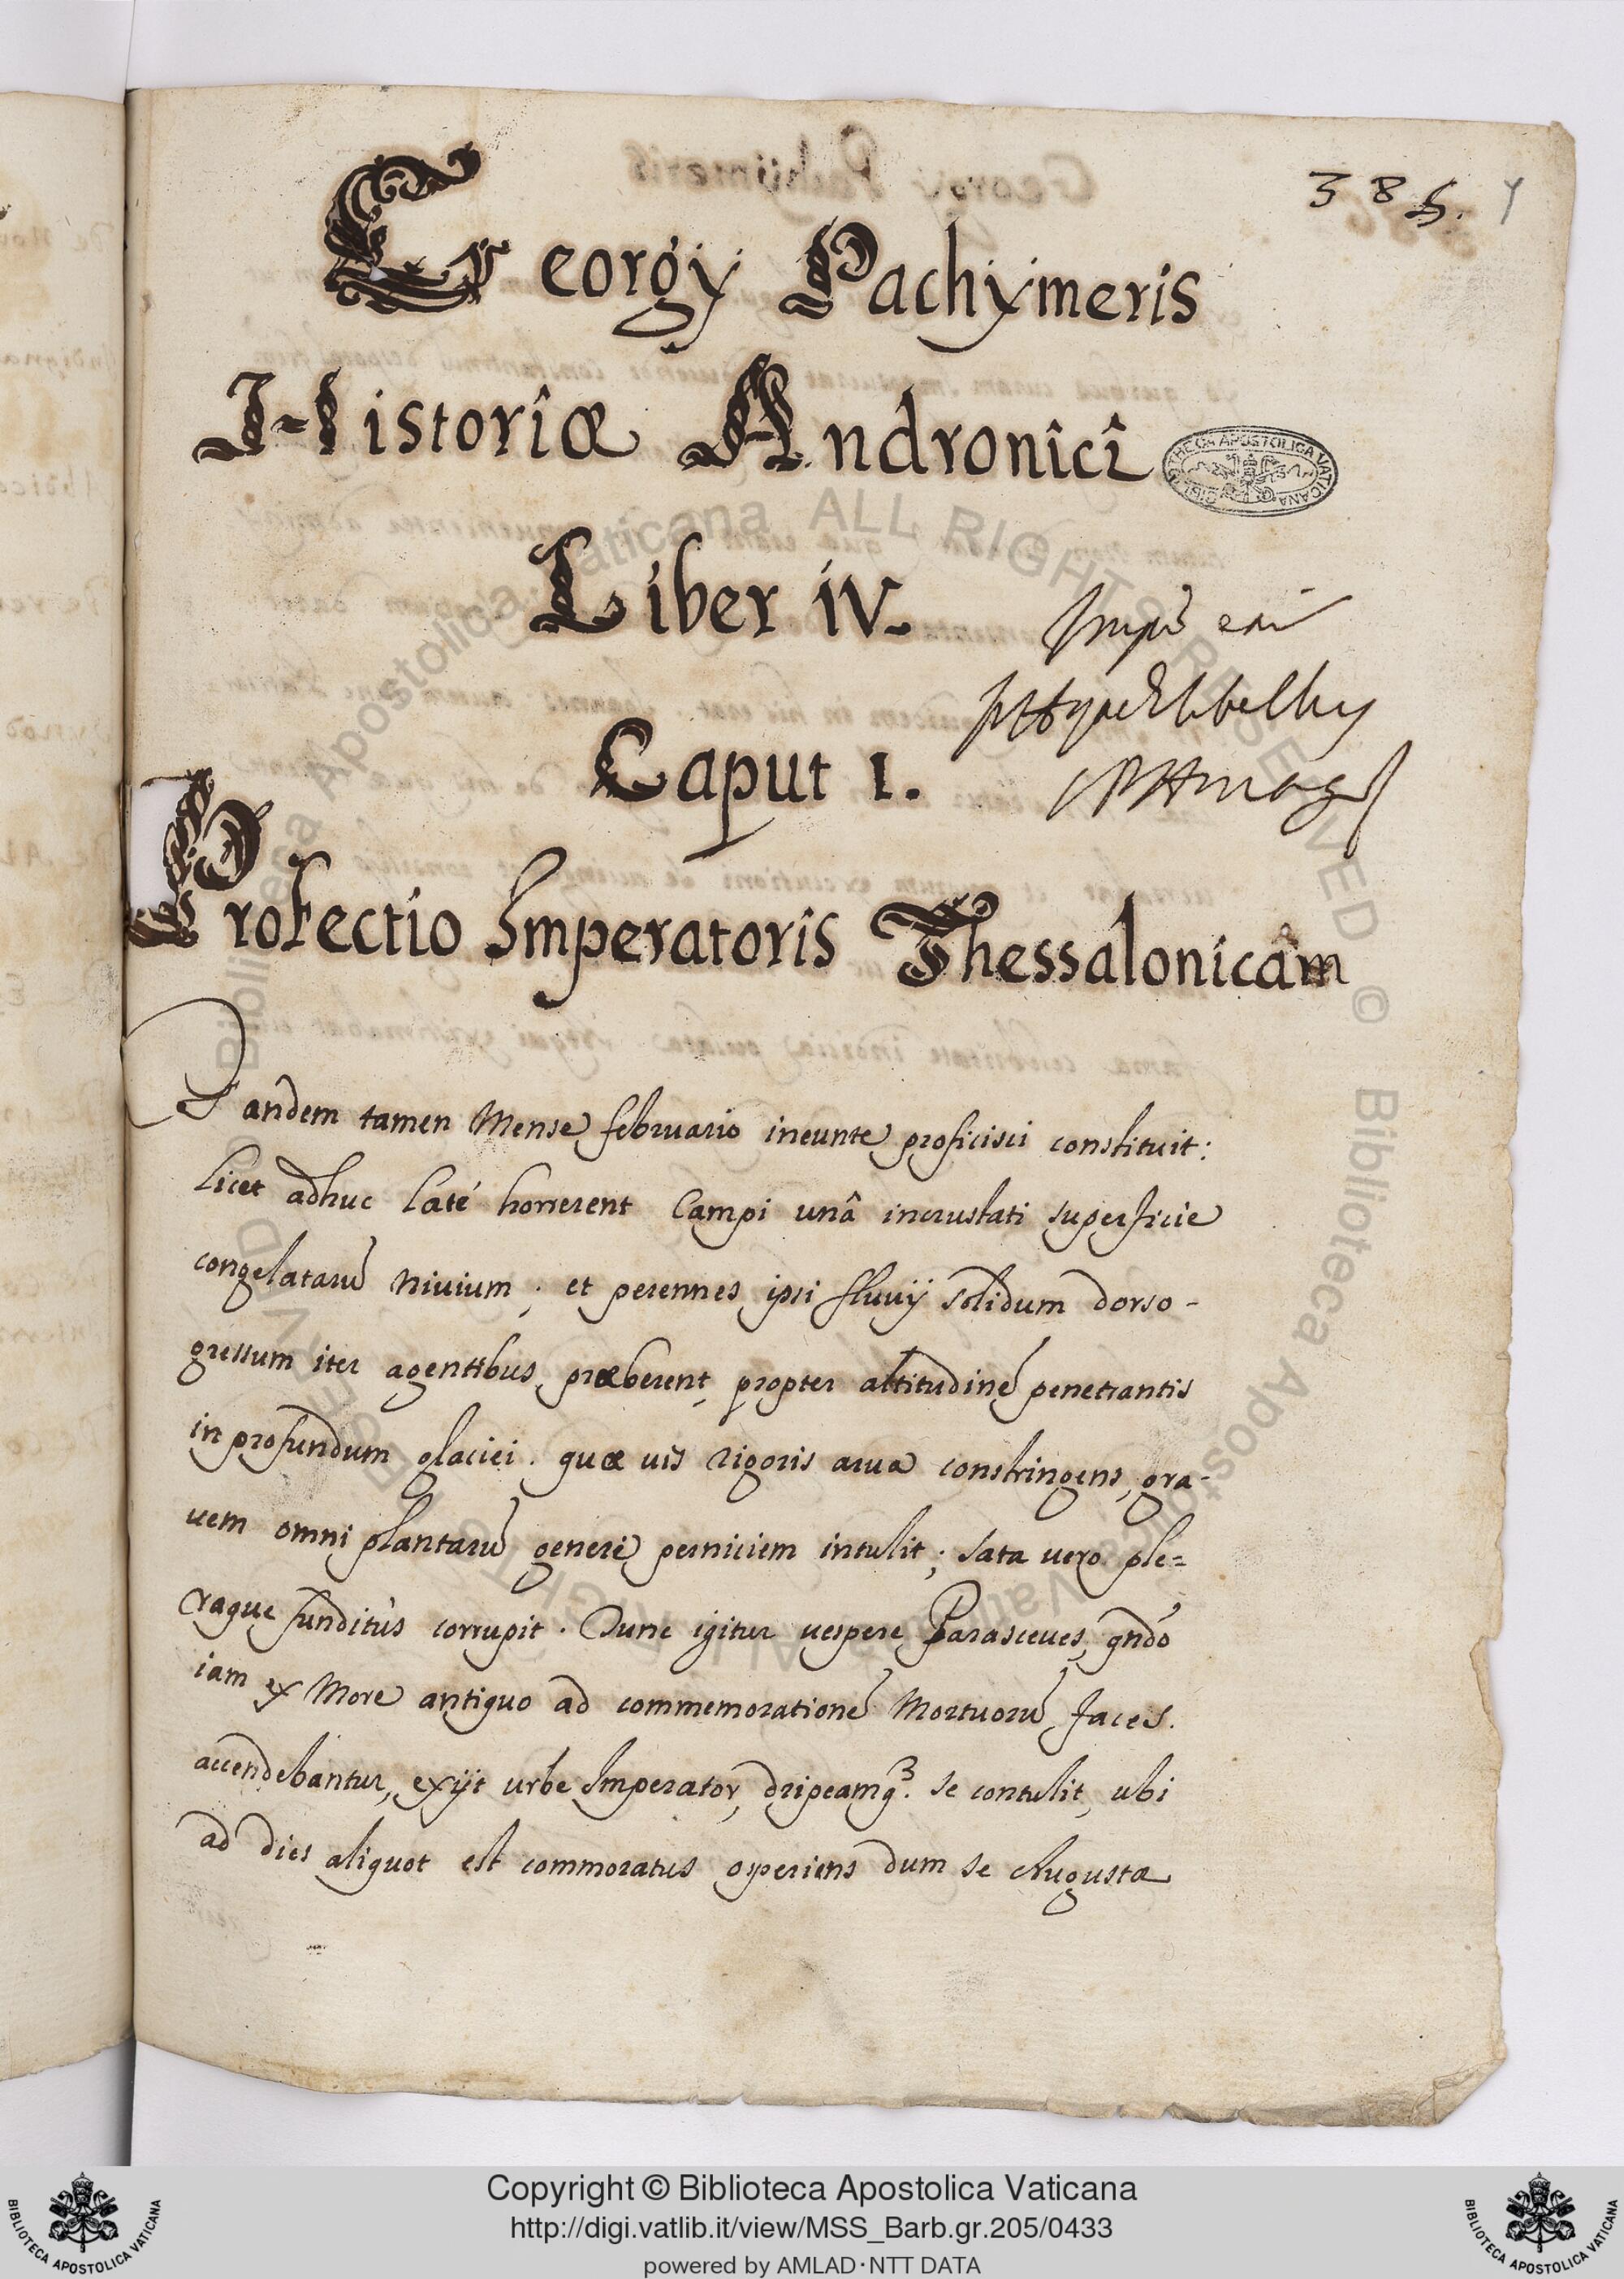 385. Y
Georgy Pachymeris
Historiæ Andronicî
Liber iv.
Caput 1.
Profectio Imperatoris Thessalonicâm
Tandem tamen Mense februario ineunte proficisci constituit:
licet adhuc laté horrerent Campi unâ incrustati superficie
congelatarũ nivium; et perennes ipsi fluvij solidum dorso-
gressum iter agentibus præberent, propter altitudinẽ penetrantis
in profundum glaciei. quæ uis rigoris arua constringens, gra-
uem omni plantarũ generi perniciem intulit; sata vero ple=
raque funditùs corrupit. Tunc igitur uespere Parasceues, qndó
iam ex More antiquo ad commemorationẽ Mortuorũ faces.
accendebantur, exijt urbe Imperator, dripeamq3. se contulit, ubi
ad dies aliquot est commoratus operiens dum se Augusta
BIBLIOTHECA APOSTOLICA VATICANA
Biblioteca Apostolica Vaticana ALL RIGHTS RESERVED ©
Copyright © Biblioteca Apostolica Vaticana
http://digi.vatlib.it/view/MSS_Barb.gr.205/0433
powered by AMLAD·NTT DATA
BIBLIOTECA APOSTOLICA VATICANA
BIBLIOTECA APOSTOLICA VATICANA